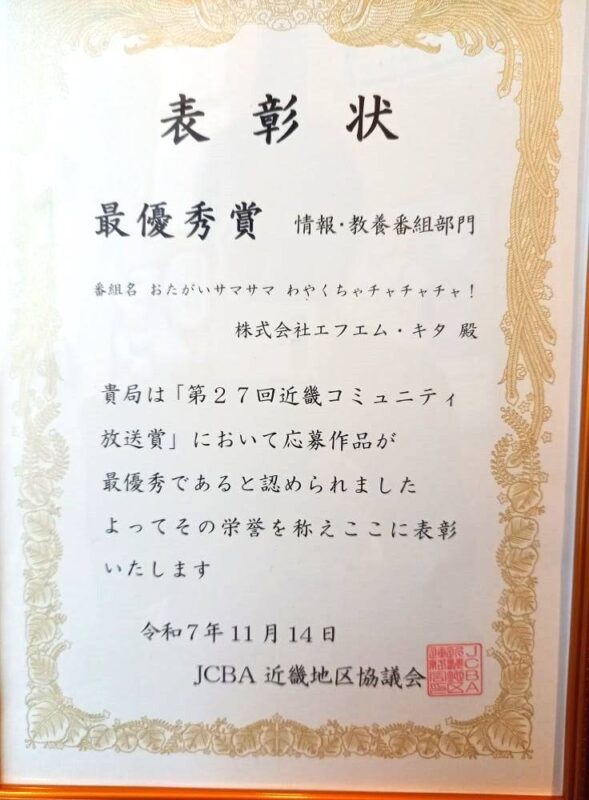 表彰状
最優秀賞 情報・教養番組部門
番組名 おたがいサマサマ わやくちゃチャチャチャ！
株式会社エフエム・キタ 殿
貴局は「第２７回近畿コミュニティ
放送賞」において応募作品が
最優秀であると認められました
よってその栄誉を称えここに表彰
いたします
令和7年11月14日
JCBA 近畿地区協議会
JCBA